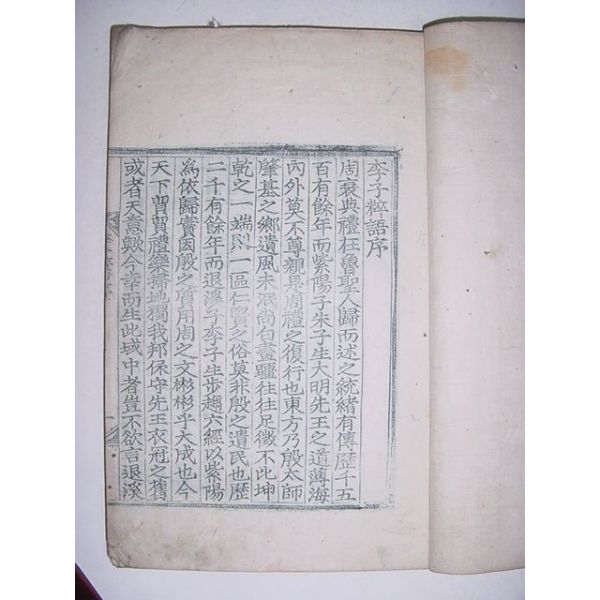 李子粹語序
周衰典禮在魯聖人歸而述之統緒有傳歷千五
百有餘年而紫陽子朱子生大明先王之道薄海
內外莫不尊親是周禮之復行也東方乃殷太師
肇基之鄉遺風未泯尙白畫疆往往足徵不比坤
乾之一端則一區仁賢之俗莫非殷之遺民也歷
二千有餘年而退溪子李子生步趨六經以紫陽
爲依歸實因殷之質用周之文彬彬乎大成也今
天下貿貿禮樂掃地獨我邦保守先王衣冠之舊
或者天意歟今幸而生此域中者豈不欲言退溪